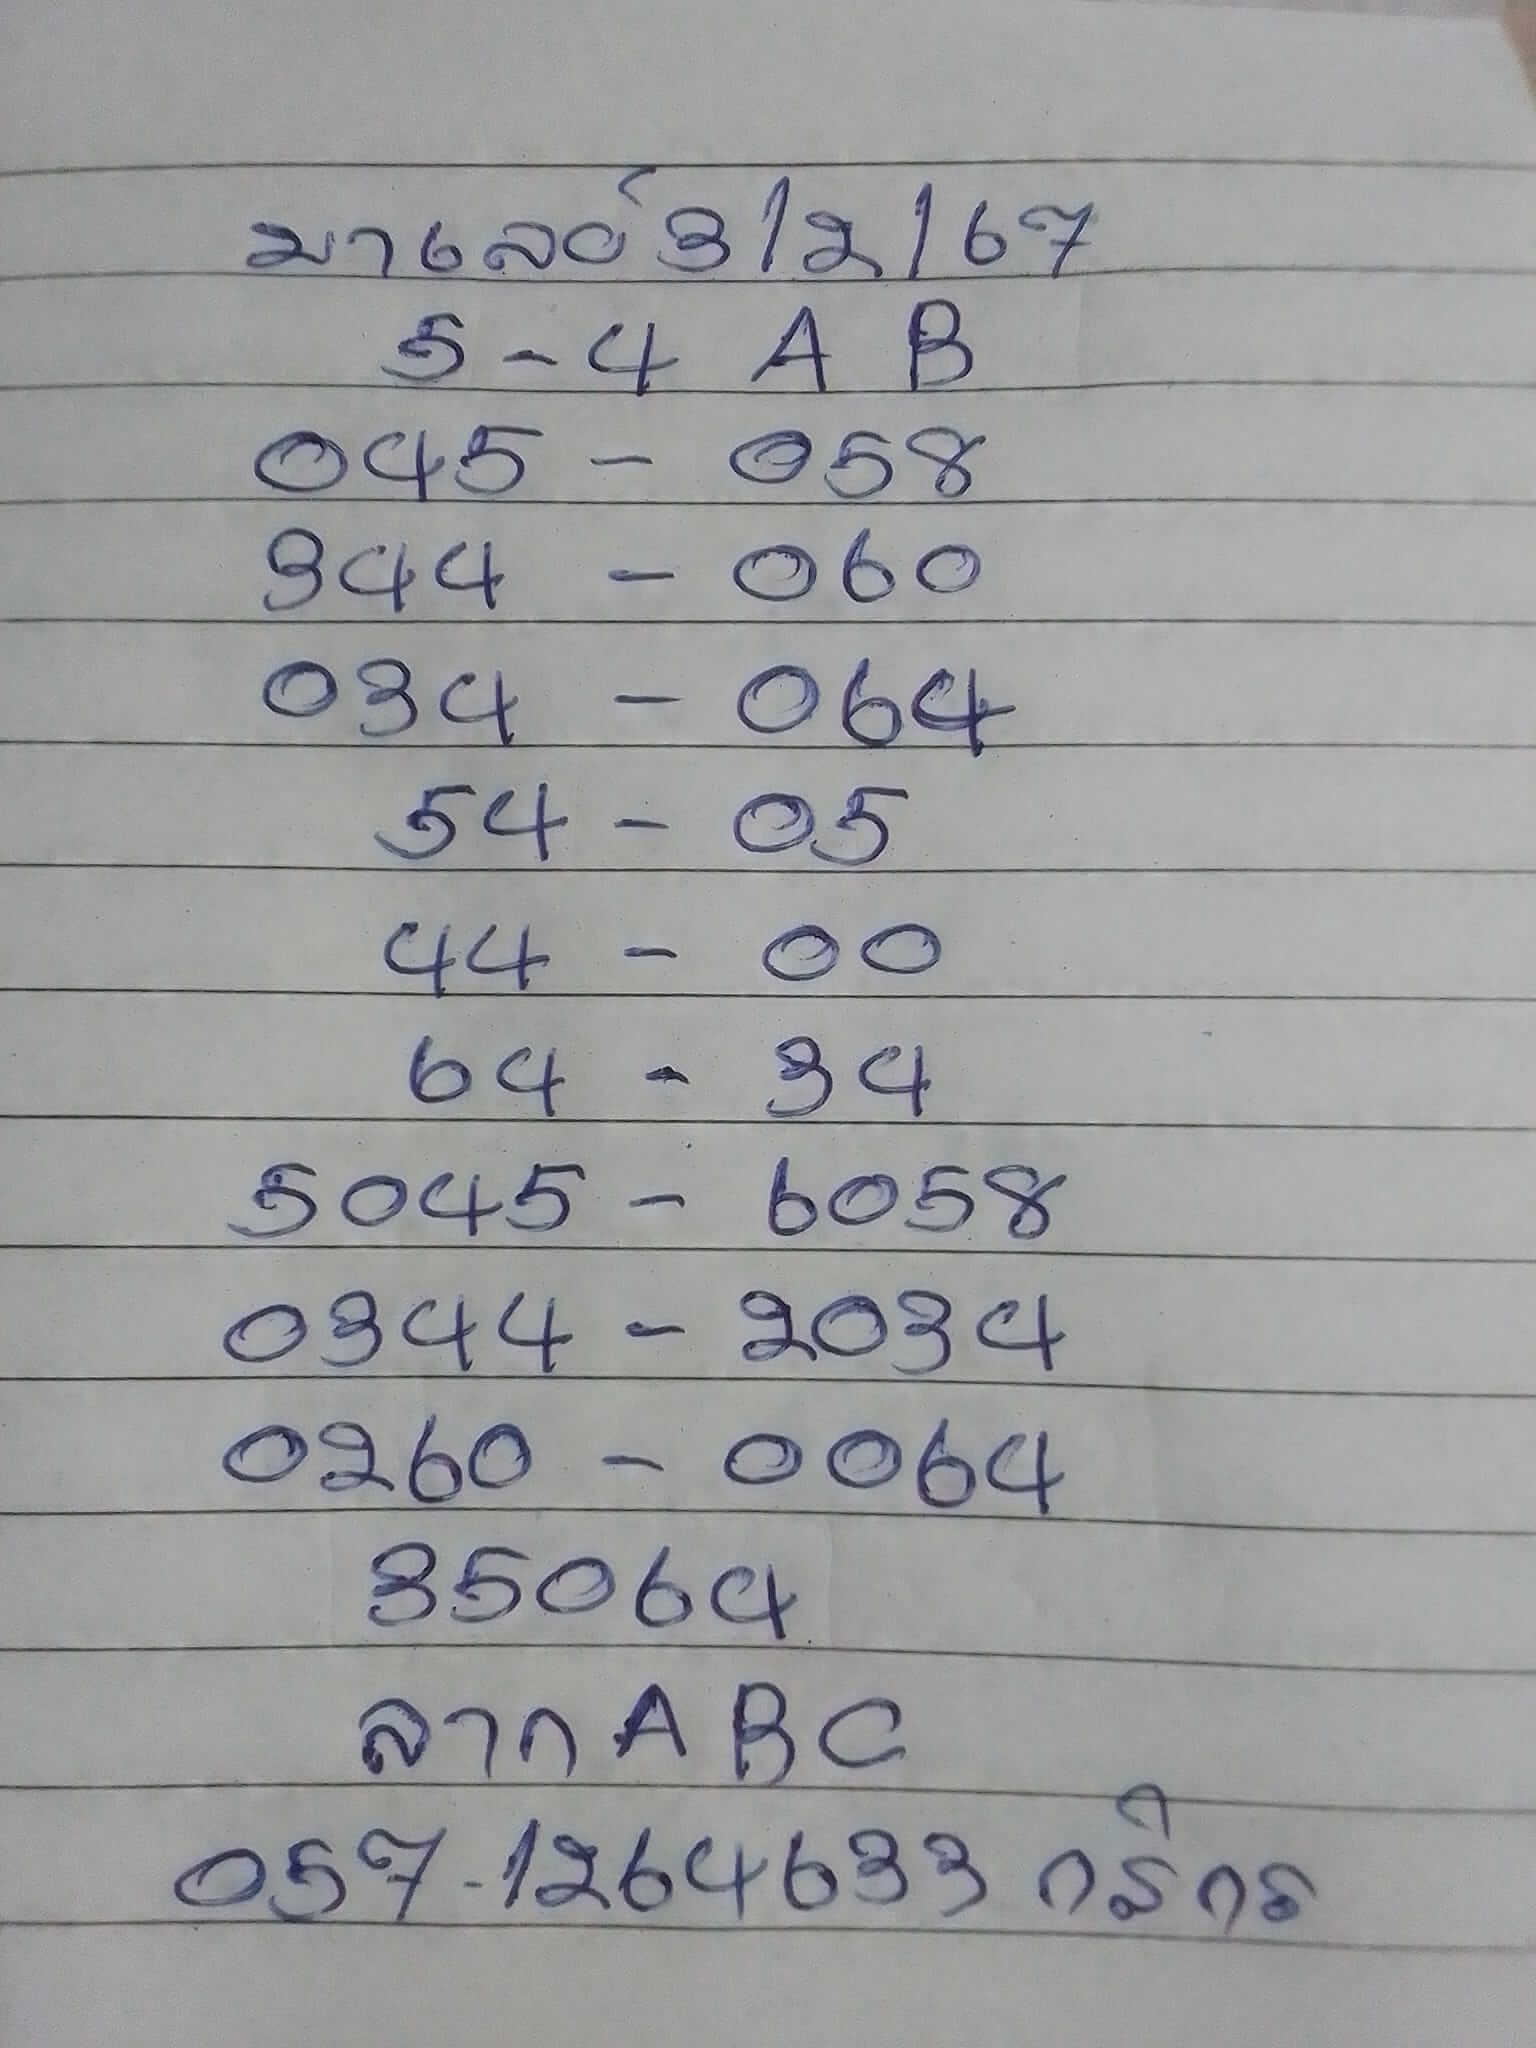 มาเลย์ 3/2/67
5-4 A B
045 - 058
344 - 060
034 - 064
54 - 05
44 - 00
64 - 34
5045 - 6058
0344 - 2034
0260 - 0064
35064
ลาก A B C
057-1264633 กสิกร